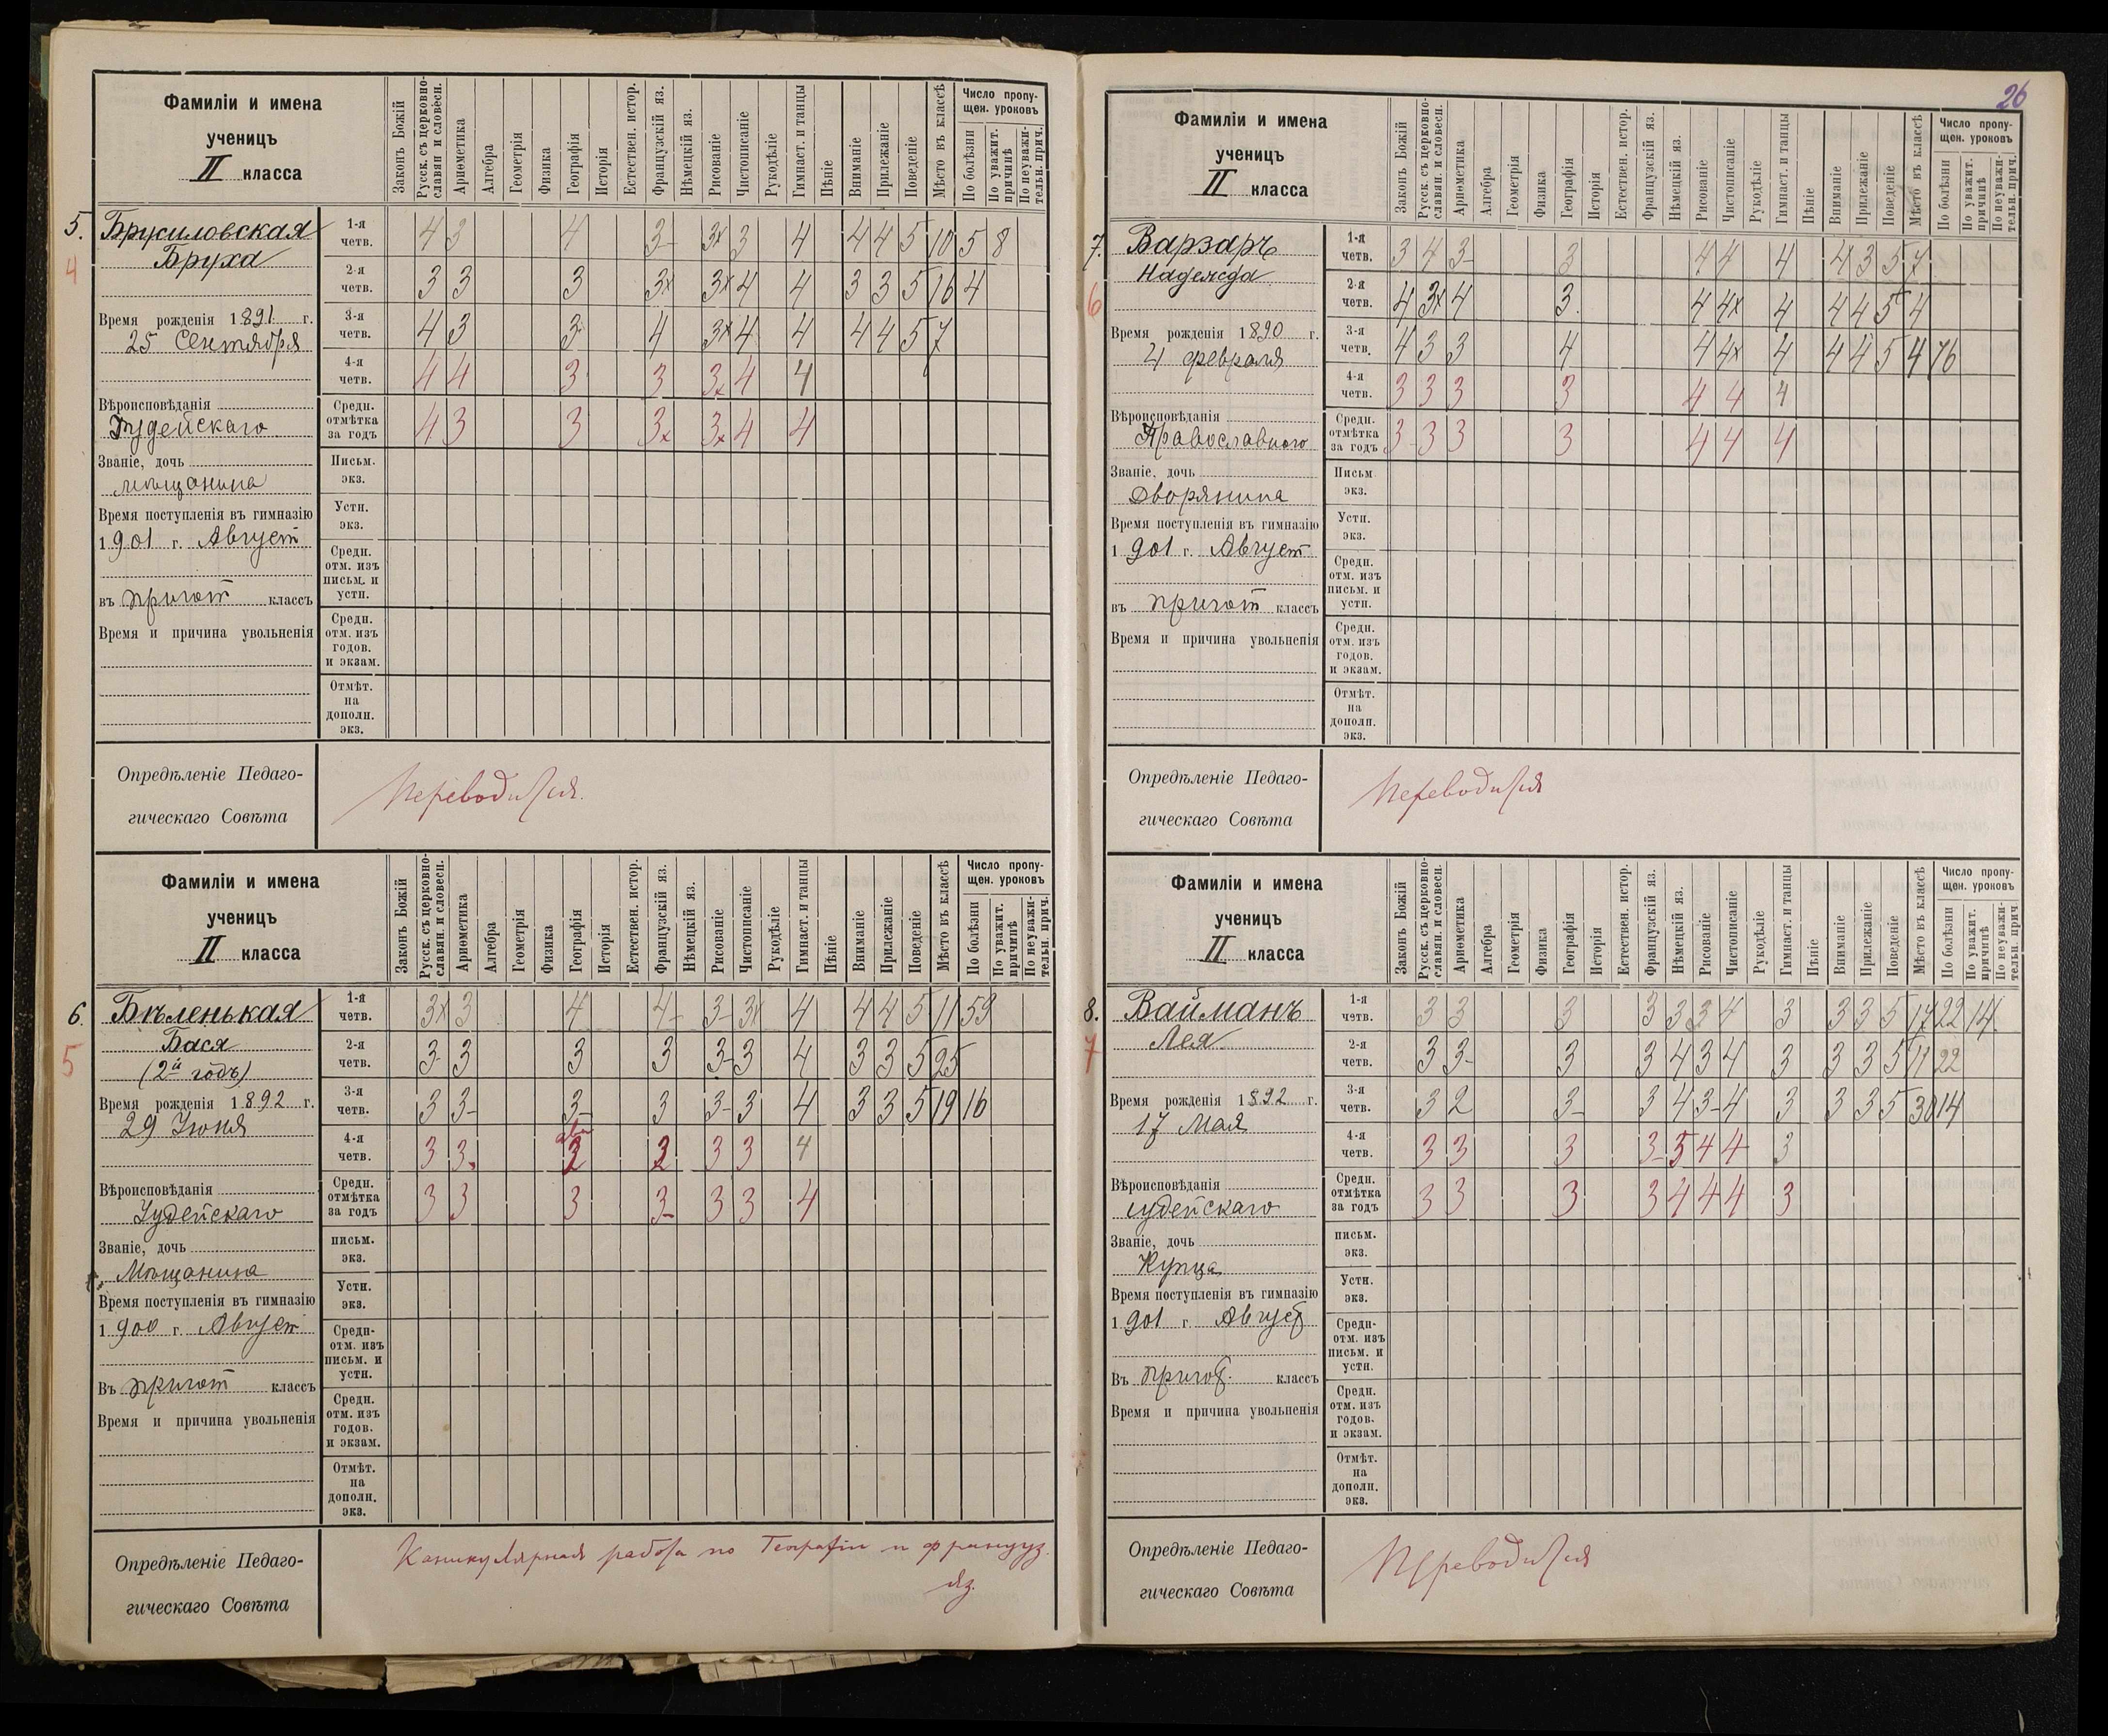 26
Фамиліи и имена
ученицъ
II класса
Законъ Божій
Русск. съ церковно-славян. и словесн.
Ариѳметика
Алгебра
Геометрія
Физика
Географія
Исторія
Естествен. истор.
Французскій яз.
Нѣмецкій яз.
Рисованіе
Чистописаніе
Рукодѣліе
Гимнаст. и танцы
Пѣніе
Вниманіе
Прилежаніе
Поведеніе
Мѣсто въ классѣ
Число пропу-
щен. уроковъ
По болѣзни
По уважит. причинѣ
По неуважи-тельн. прич.
5. Брусиловская
4
Бруха
Время рожденія 1891 г.
25 Сентября
Вѣроисповѣданія
Іудейскаго
Званіе, дочь
мѣщанина
Время поступленія въ гимназію
1901 г. Август
въ пригот классъ
Время и причина увольненія
1-я четв. 4 3 4 3- 3х 3 4 4 4 5 10 5 8
2-я четв. 3 3 3 3х 3х 4 4 3 3 5 16 4
3-я четв. 4 3 3 4 3х 4 4 4 4 5 7
4-я четв. 4 4 3 3 3х 4 4
Средн. отмѣтка за годъ 4 3 3 3х 3х 4 4
Письм. экз.
Устн. экз.
Средн. отм. изъ письм. и устн.
Средн. отм. изъ годов. и экзам.
Отмѣт. на дополн. экз.
Опредѣленіе Педаго-
гическаго Совѣта
Переводится.
Фамиліи и имена
ученицъ
II класса
Законъ Божій
Русск. съ церковно-славян. и словесн.
Ариѳметика
Алгебра
Геометрія
Физика
Географія
Исторія
Естествен. истор.
Французскій яз.
Нѣмецкій яз.
Рисованіе
Чистописаніе
Рукодѣліе
Гимнаст. и танцы
Пѣніе
Вниманіе
Прилежаніе
Поведеніе
Мѣсто въ классѣ
Число пропу-
щен. уроковъ
По болѣзни
По уважит. причинѣ
По неуважи-тельн. прич.
6. Бѣленькая
5
Бася
(2й годъ)
Время рожденія 1892 г.
29 Іюня
Вѣроисповѣданія
Іудейскаго
Званіе, дочь
Мѣщанина
Время поступленія въ гимназію
1900 г. Август
Въ пригот классъ
Время и причина увольненія
1-я четв. 3х 3 4 4- 3- 3х 4 4 4 5 11 59
2-я четв. 3- 3 3 3 3- 3 4 3 3 5 25
3-я четв. 3 3- 3- 3 3- 3 4 3 3 5 19 16
4-я четв. 3 3. 2 2 3 3 4
Средн. отмѣтка за годъ 3 3 3 3- 3 3 4
письм. экз.
Устн. экз.
Средн- отм. изъ письм. и устн.
Средн. отм. изъ годов. и экзам.
Отмѣт. на дополн. экз.
Опредѣленіе Педаго-
гическаго Совѣта
Каникулярная работа по Географіи и француз.
яз.
Фамиліи и имена
ученицъ
II класса
Законъ Божій
Русск. съ церковно-славян. и словесн.
Ариѳметика
Алгебра
Геометрія
Физика
Географія
Исторія
Естествен. истор.
Французскій яз.
Нѣмецкій яз.
Рисованіе
Чистописаніе
Рукодѣліе
Гимнаст. и танцы
Пѣніе
Вниманіе
Прилежаніе
Поведеніе
Мѣсто въ классѣ
Число пропу-
щен. уроковъ
По болѣзни
По уважит. причинѣ
По неуважи-тельн. прич.
7. Варзаръ
Надежда
6
Время рожденія 1890 г.
4 февраля
Вѣроисповѣданія
Православного
Званіе, дочь
Дворянина
Время поступленія въ гимназію
1901 г. Август
въ пригот классъ
Время и причина увольненія
1-я четв. 3 4 3- 3 4 4 4 4 3 5 7
2-я четв. 4 3х 4 3. 4 4х 4 4 4 5 4
3-я четв. 4 3 3 4 4 4х 4 4 4 5 4 76
4-я четв. 3 3 3 3 4 4 4
Средн. отмѣтка за годъ 3 3 3 3 4 4 4
Письм экз.
Устн. экз.
Средн. отм. изъ письм. и устн.
Средн. отм. изъ годов. и экзам.
Отмѣт. на дополн. экз.
Опредѣленіе Педаго-
гическаго Совѣта
Переводится
Фамиліи и имена
ученицъ
II класса
Законъ Божій
Русск. съ церковно-славян. и словесн.
Ариѳметика
Алгебра
Геометрія
Физика
Географія
Исторія
Естествен. истор.
Французскій яз.
Нѣмецкій яз.
Рисованіе
Чистописаніе
Рукодѣліе
Гимнаст. и танцы
Пѣніе
Вниманіе
Прилежаніе
Поведеніе
Мѣсто въ классѣ
Число пропу-
щен. уроковъ
По болѣзни
По уважит. причинѣ
По неуважи-тельн. прич
8. Вайманъ
7
Лея
Время рожденія 1892 г.
17 Мая
Вѣроисповѣданія
іудейскаго
Званіе, дочь
Купца
Время поступленія въ гимназію
1901 г. Август
Въ пригот. классъ
Время и причина увольненія
1-я четв. 3 3 3 3 3 3 4 3 3 3 5 17 22 14.
2-я четв. 3 3- 3 3 4 3 4 3 3 3 5 11 22
3-я четв. 3 2 3- 3 4 3- 4 3 3 3 5 30 14
4-я четв. 3 3 3 3- 5 4 4 3
Средн. отмѣтка за годъ 3 3 3 3 4 4 4 3
письм. экз.
Устн. экз.
Средн- отм. изъ письм. и устн.
Средн. отм. изъ годов. и экзам.
Отмѣт. на дополн. экз.
Опредѣленіе Педаго-
гическаго Совѣта
Переводится